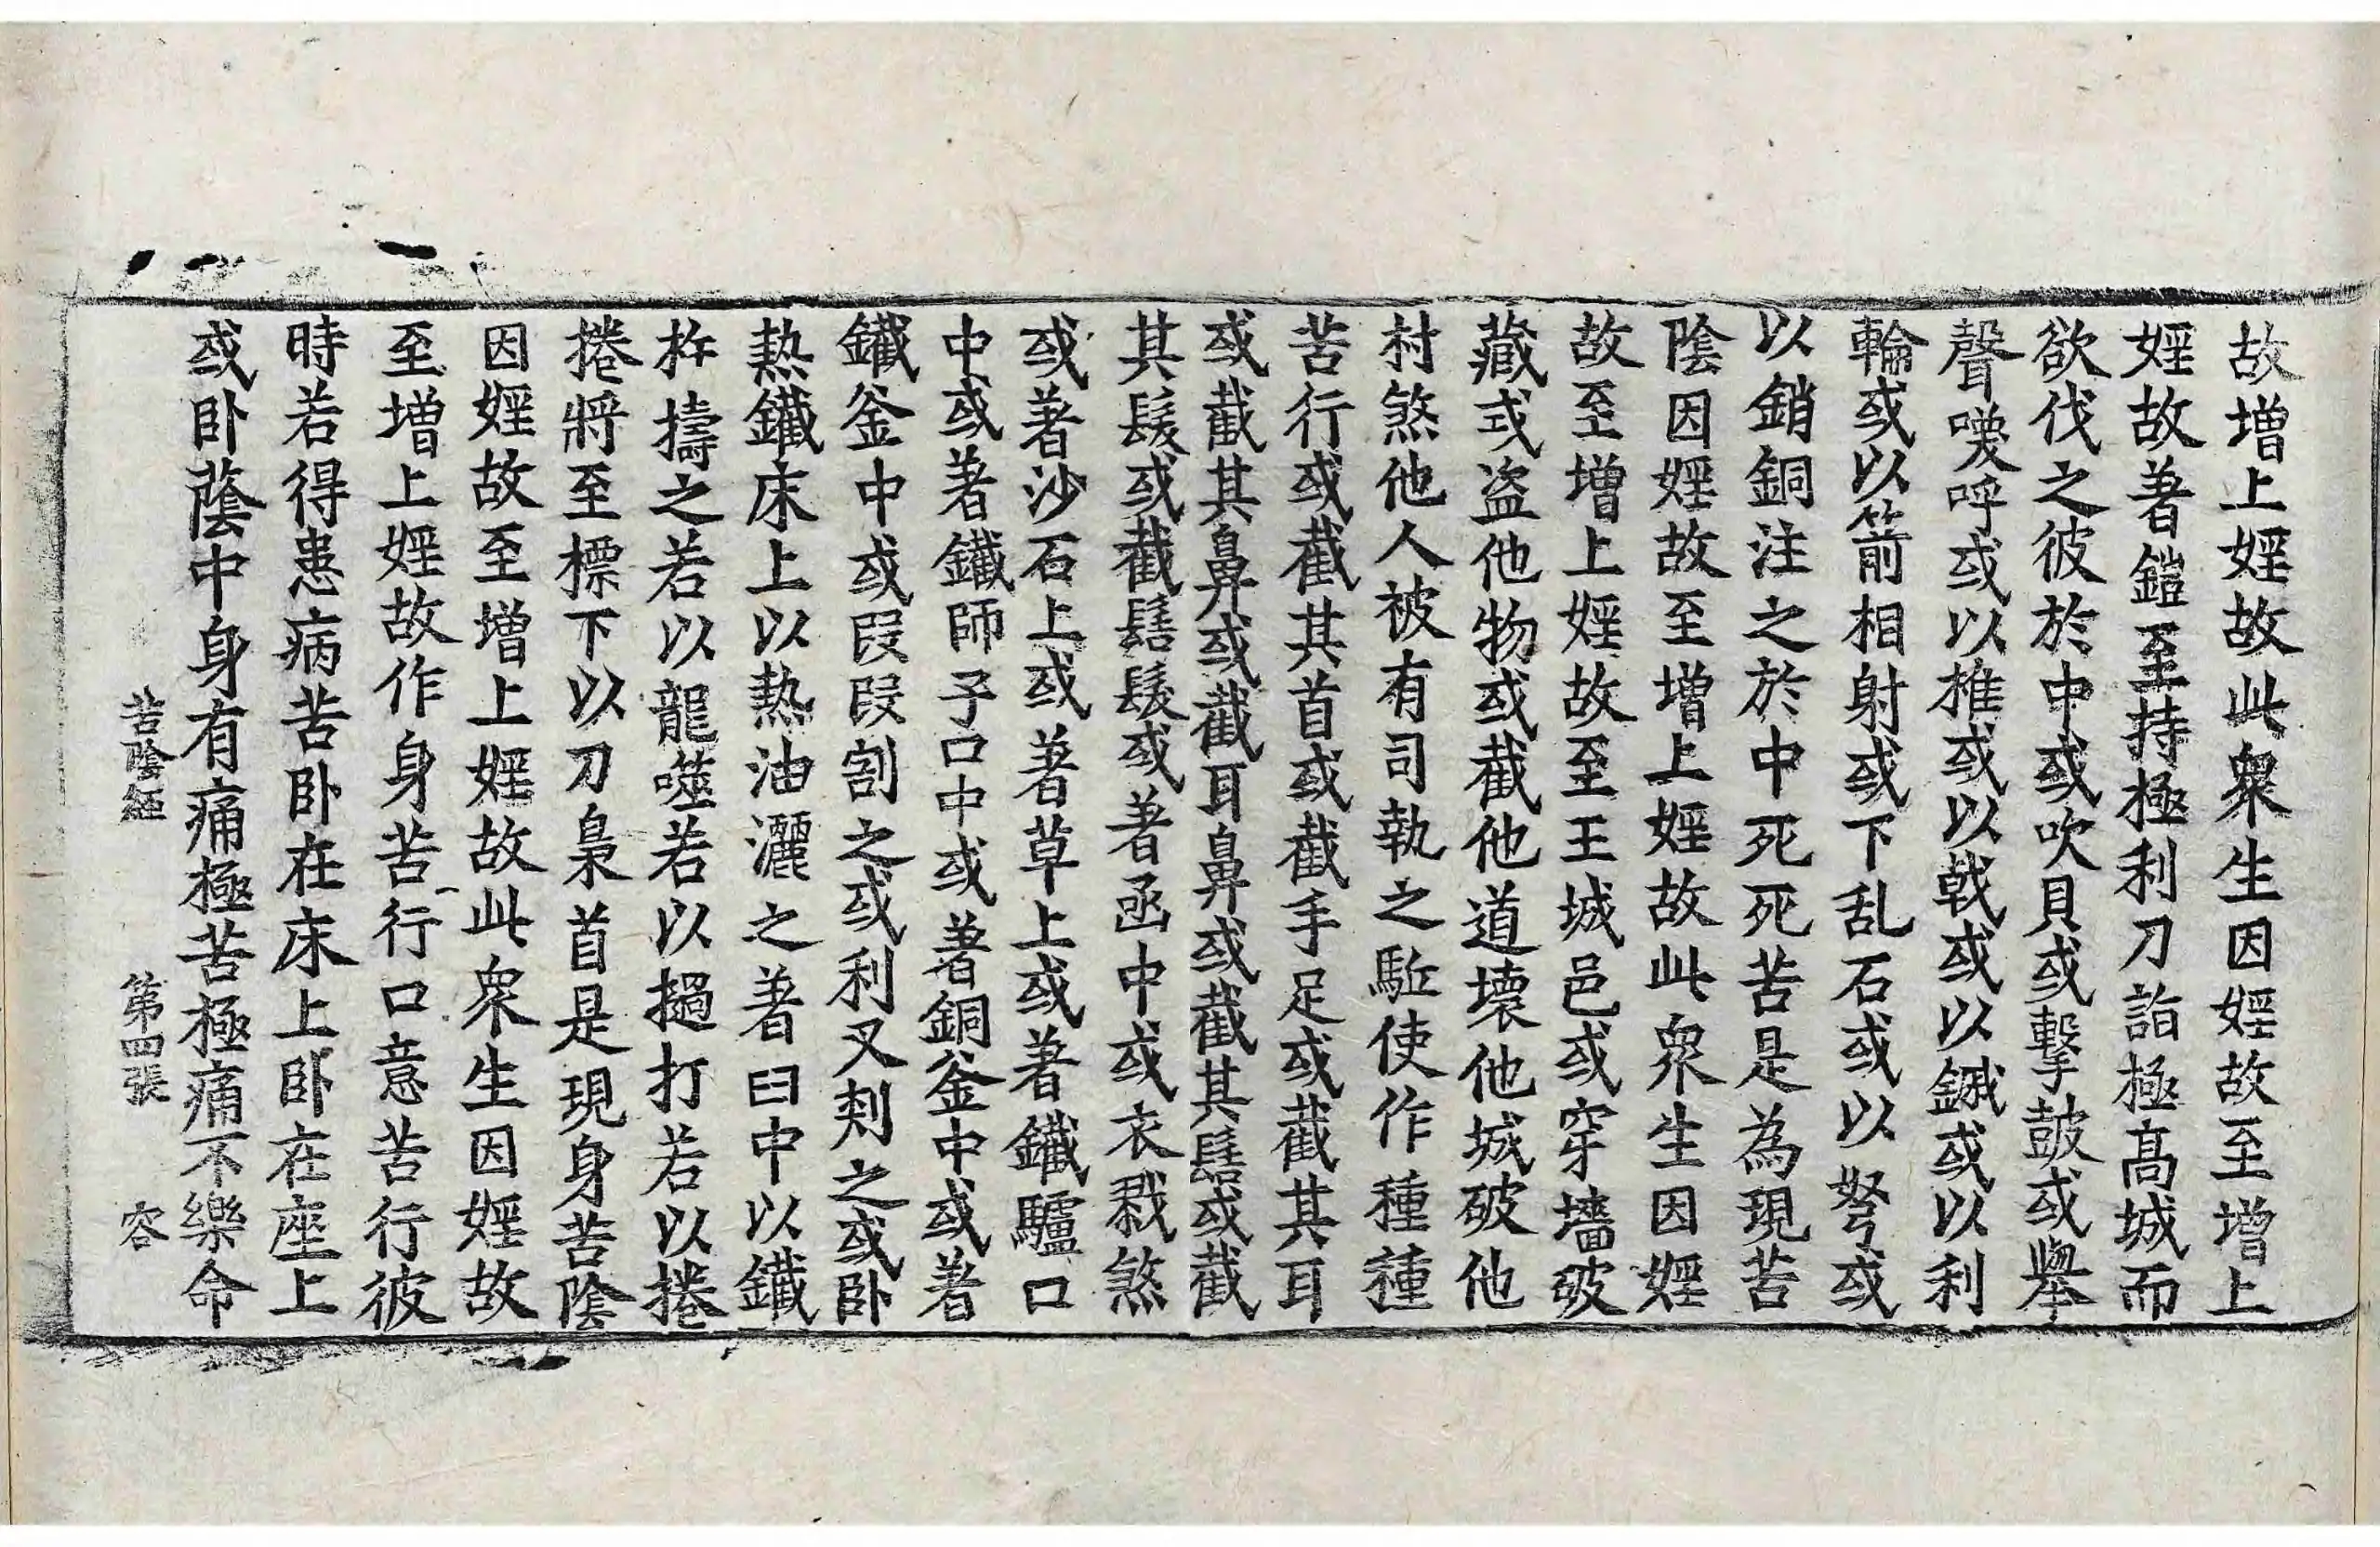 故增上婬故此衆生因婬故至增上
婬故著鎧至持極利刀詣極高城而
欲伐之彼於中或吹貝或擊皷或舉
聲嘆呼或以推或以戟或以鏚或以利
輪或以箭相射或下乱石或以弩或
以銷銅注之於中死死苦是為現苦
陰因婬故至增上婬故此衆生因婬
故至增上婬故至王城邑或穿墻破
藏或盜他物或截他道壞他城破他
村煞他人被有司執之駈使作種種
苦行或截其首或截手足或截其耳
或截其鼻或截耳鼻或截其髻或截
其髮或截髻髮或著函中或衣戮煞
或著沙石上或著草上或著鐵驢口
中或著鐵師子口中或著銅釜中或著
鐵釜中或段段割之或利叉刾之或卧
熱鐵床上以熱油灑之著臼中以鐵
杵擣之若以龍噬若以撾打若以捲
捲將至標下以刀梟首是現身苦陰
因婬故至增上婬故此衆生因婬故
至增上婬故作身苦行口意苦行彼
時若得患病苦卧在床上卧在座上
或卧蔭中身有痛極苦極痛不樂命
苦陰經 第四張 容